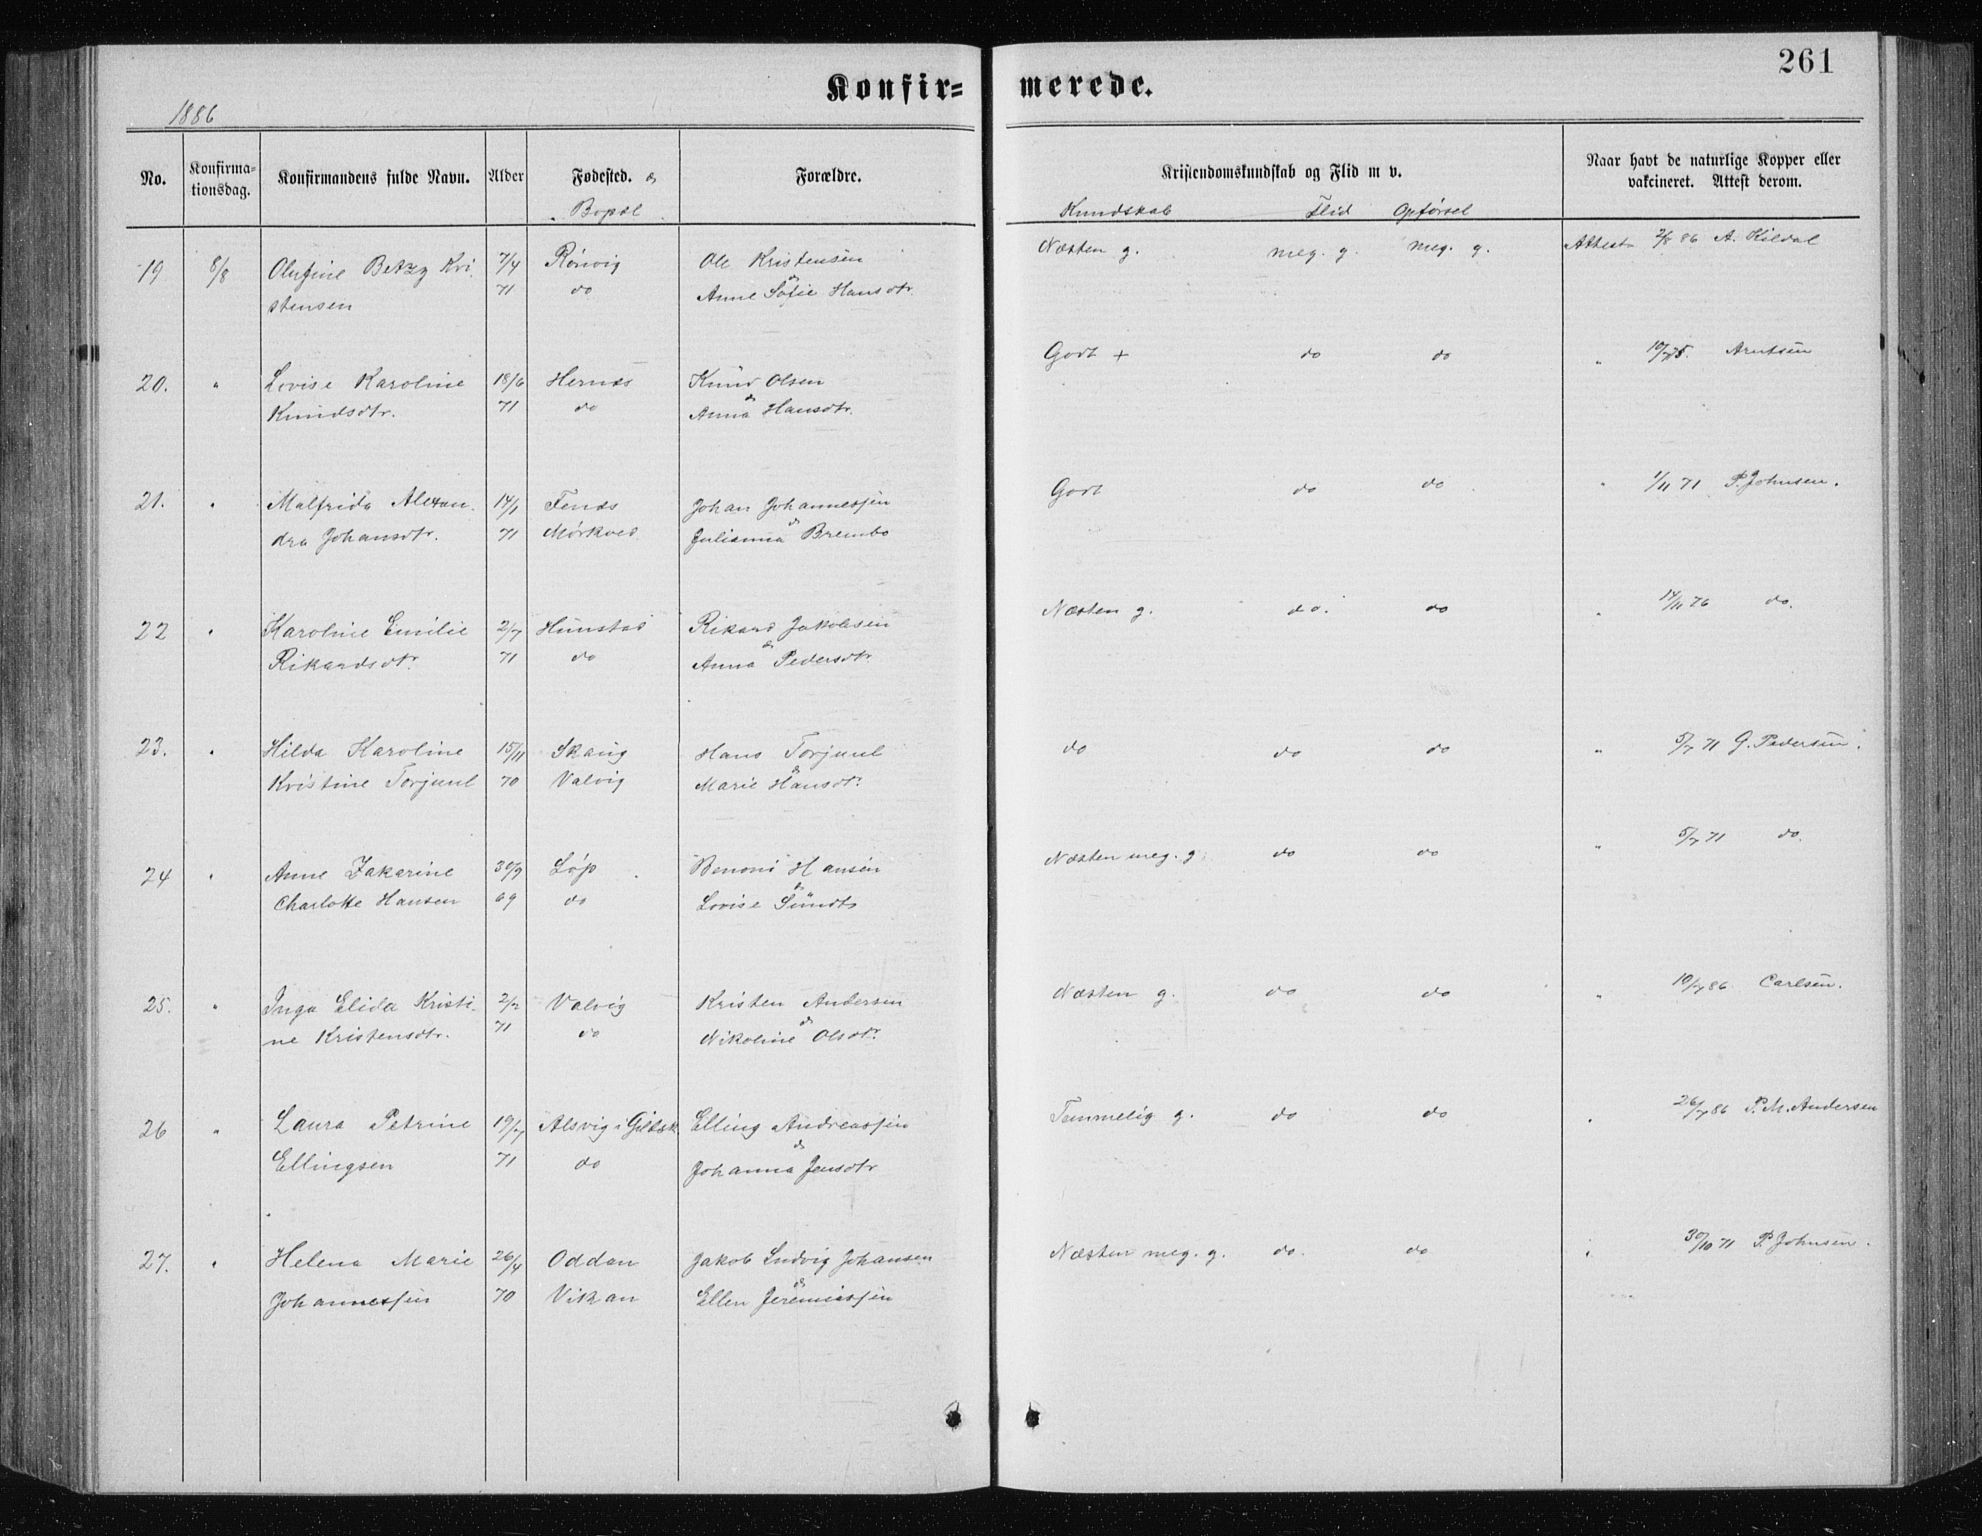 261
Konfir= merede.
1886
No. Konfirma-tionsdag. Konfirmandens fulde Navn. Alder Fødested. & Bopæl Forældre. Kristendomskundskab og Flid m v. Naar havt de naturlige Kopper eller vakcineret. Attest derom.
Kundskab Flid Opførsel
19 8/8 Olufine Betzy Kri- 7/4 Rønvig Ole Kristensen Næsten g. meg. g. meg. g. Attest 2/8 86 A. Hildal
stensen 71 do & Anne Sofie Hansdtr.
20. " Lovise Karoline 18/6 Hernæs Knud Olsen Godt + do do " Arntsen
Knudsdtr. 71 do & Anna Hansdtr.
21. " Malfrida Alexan- 14/1 Fenes Johan Johannessen Godt do do " 1/11 71 P. Johnsen.
dra Johansdtr. 71 Mørkved & Julianna Brembo
22 " Karoline Emilie 2/7 Hunstad Rikard Jakobsen Næsten g. do. do " 14/11 76 do.
Rikardsdtr. 71 do & Anna Pedersdtr.
23. " Hilda Karoline 15/11 Skaug Hans Torjuul do do do " 5/7 71 G. Pedersen.
Kristine Torjuul 70 Valvig & Marie Hansdtr.
24 " Anne Zakarine 30/9 Løp Benoni Hansen Næsten meg. g. do do " 5/7 71 do.
Charlotte Hansen 69 do & Lovise Sundts
25. " Inga Elida Kristi- 2/2 Valvig Kristen Andersen Næsten g. do do " 10/7 86 Carlsen.
ne Kristensdtr. 71 do & Nikoline Olsdtr.
26 " Laura Petrine 19/7 Alsvig i Gildsk. Elling Andreassen Temmelig g. do do " 26/7 86 P. M. Andersen
Ellingsen 71 do & Johanna Jensdtr
27. " Helena Marie 26/4 Oddan Jakob Ludvig Johansen Næsten meg. g. do. do " 30/10 71 P. Johnsen.
Johannessen 70 Vikan & Ellen Jeremiassen